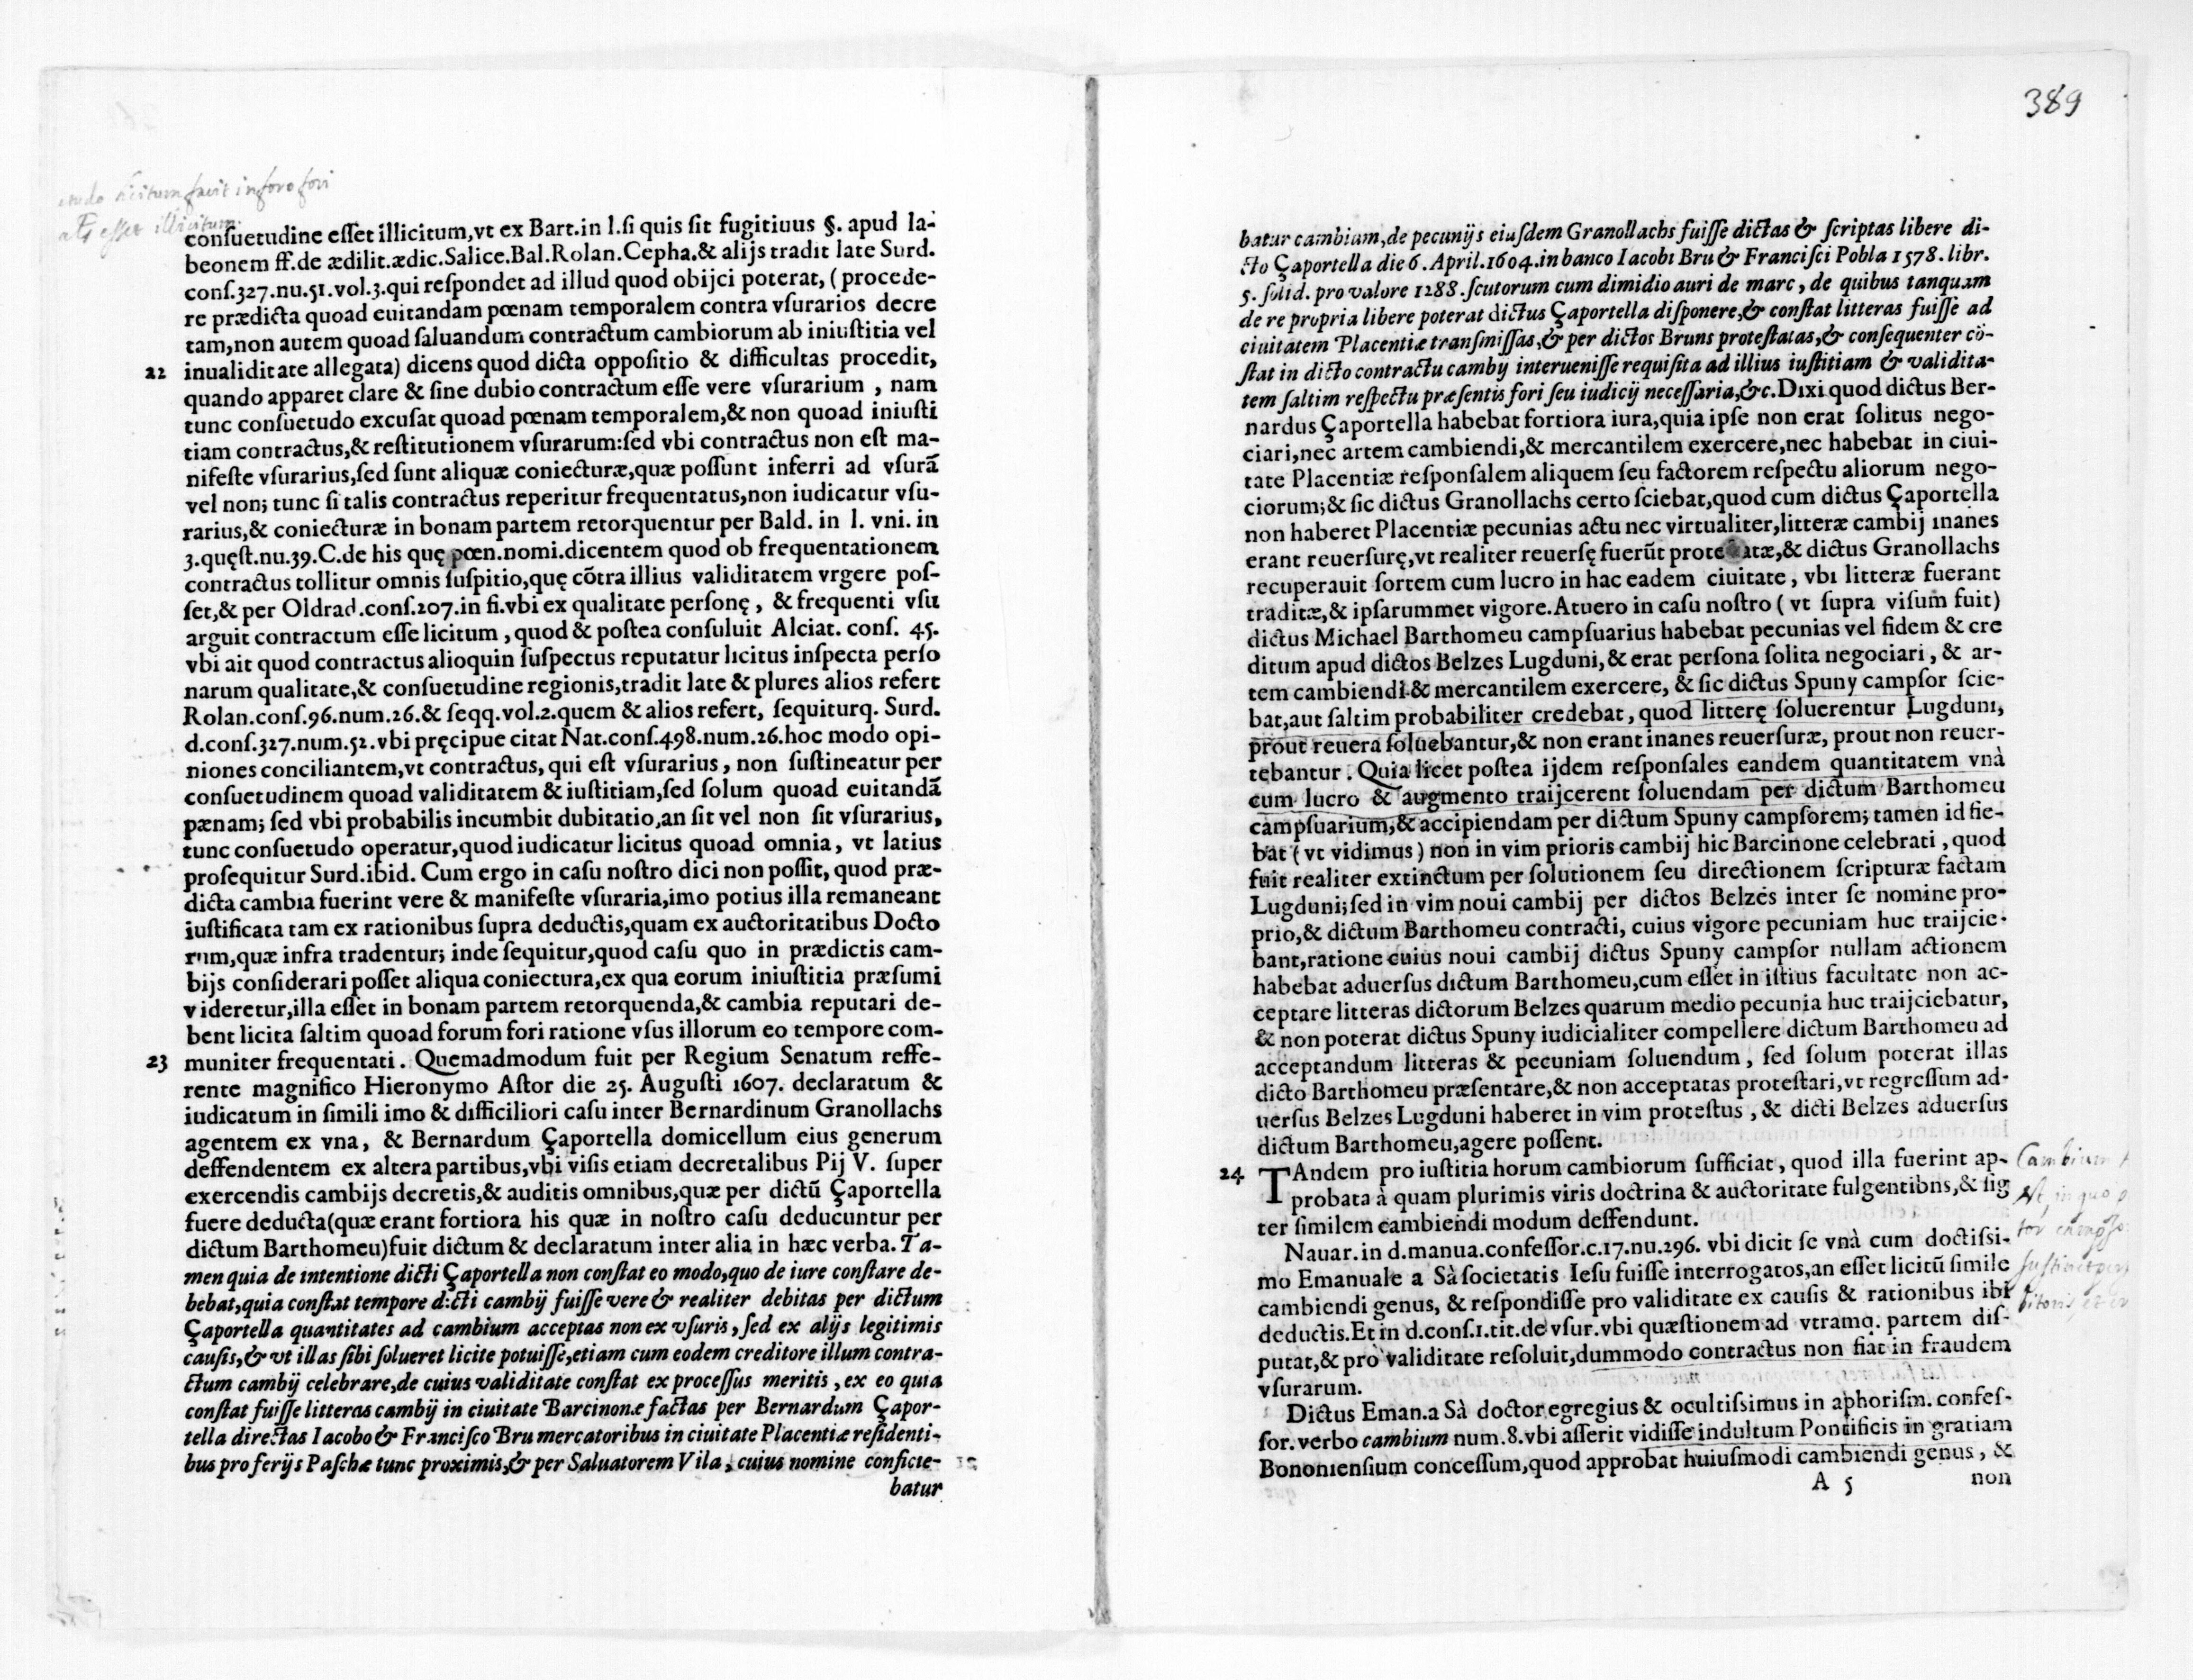 etudo licitum facit in foro fori
als esset illicitum.
consuetudine esset illicitum,vt ex Bart.in l.si quis sit fugitiuus §. apud la-
beonem ff.de ædilit.ædic.Salice.Bal.Rolan.Cepha.& alijs tradit late Surd.
cons.327.nu.51.vol.3.qui respondet ad illud quod obijci poterat, (procede-
re prædicta quoad euitandam pœnam temporalem contra vsurarios decre
tam,non autem quoad saluandum contractum cambiorum ab iniustitia vel
22 inualiditate allegata) dicens quod dicta oppositio & difficultas procedit,
quando apparet clare & sine dubio contractum esse vere vsurarium , nam
tunc consuetudo excusat quoad pœnam temporalem,& non quoad iniusti
tiam contractus,& restitutionem vsurarum:sed vbi contractus non est ma-
nifeste vsurarius,sed sunt aliquæ coniecturæ,quæ possunt inferri ad vsurã
vel non; tunc si talis contractus reperitur frequentatus,non iudicatur vsu-
rarius,& coniecturæ in bonam partem retorquentur per Bald. in l. vni. in
3.quęst.nu.39.C.de his quę pœn.nomi.dicentem quod ob frequentationem
contractus tollitur omnis suspitio,quę cõtra illius validitatem vrgere pos-
set,& per Oldrad.cons.207.in fi.vbi ex qualitate personę , & frequenti vsu
arguit contractum esse licitum , quod & postea consuluit Alciat. cons. 45.
vbi ait quod contractus alioquin suspectus reputatur licitus inspecta perso
narum qualitate,& consuetudine regionis,tradit late & plures alios refert
Rolan.cons.96.num.26.& seqq.vol.2.quem & alios refert, sequiturq. Surd.
d.cons.327.num.52.vbi pręcipue citat Nat.cons.498.num.26.hoc modo opi-
niones conciliantem,vt contractus, qui est vsurarius , non sustineatur per
consuetudinem quoad validitatem & iustitiam,sed solum quoad euitandã
pænam; sed vbi probabilis incumbit dubitatio,an sit vel non sit vsurarius,
tunc consuetudo operatur,quod iudicatur licitus quoad omnia, vt latius
prosequitur Surd.ibid. Cum ergo in casu nostro dici non possit, quod præ-
dicta cambia fuerint vere & manifeste vsuraria,imo potius illa remaneant
iustificata tam ex rationibus supra deductis,quam ex auctoritatibus Docto
rum,quæ infra tradentur; inde sequitur,quod casu quo in prædictis cam-
bijs considerari posset aliqua coniectura,ex qua eorum iniustitia præsumi
videretur,illa esset in bonam partem retorquenda,& cambia reputari de-
bent licita saltim quoad forum fori ratione vsus illorum eo tempore com-
23 muniter frequentati . Quemadmodum fuit per Regium Senatum reffe-
rente magnifico Hieronymo Astor die 25. Augusti 1607. declaratum &
iudicatum in simili imo & difficiliori casu inter Bernardinum Granollachs
agentem ex vna, & Bernardum Çaportella domicellum eius generum
deffendentem ex altera partibus,vbi visis etiam decretalibus Pij V. super
exercendis cambijs decretis,& auditis omnibus,quæ per dictũ Çaportella
fuere deducta(quæ erant fortiora his quæ in nostro casu deducuntur per
dictum Barthomeu)fuit dictum & declaratum inter alia in hæc verba. Ta-
men quia de intentione dicti Çaportella non constat eo modo,quo de iure constare de-
bebat,quia constat tempore dicti cambij fuisse vere & realiter debitas per dictum
Çaportella quantitates ad cambium acceptas non ex vsuris, sed ex alijs legitimis
causis,& vt illas sibi solueret licite potuisse,etiam cum eodem creditore illum contra-
ctum cambij celebrare,de cuius validitate constat ex processus meritis , ex eo quia
constat fuisse litteras cambij in ciuitate Barcinonæ factas per Bernardum Çapor-
tella directas Iacobo & Francisco Bru mercatoribus in ciuitate Placentiæ residenti-
bus pro ferijs Paschæ tunc proximis,& per Saluatorem Vila, cuius nomine conficie-
batur
389
batur cambium,de pecunijs eiusdem Granollachs fuisse dictas & scriptas libere di-
cto Çaportella die 6. April.1604.in banco Iacobi Bru & Francisci Pobla 1578. libr.
5. solid. pro valore 1288.scutorum cum dimidio auri de marc, de quibus tanquam
de re propria libere poterat dictus Çaportella disponere,& constat litteras fuisse ad
ciuitatem Placentiæ transmissas,& per dictos Bruns protestatas,& consequenter cõ-
stat in dicto contractu cambij interuenisse requisita ad illius iustitiam & validita-
tem saltim respectu præsentis fori seu iudicij necessaria,&c.Dixi quod dictus Ber-
nardus Çaportella habebat fortiora iura,quia ipse non erat solitus nego-
ciari,nec artem cambiendi,& mercantilem exercere,nec habebat in ciui-
tate Placentiæ responsalem aliquem seu factorem respectu aliorum nego-
ciorum;& sic dictus Granollachs certo sciebat,quod cum dictus Çaportella
non haberet Placentiæ pecunias actu nec virtualiter,litteræ cambij inanes
erant reuersurę,vt realiter reuersę fuerũt protestatæ,& dictus Granollachs
recuperauit sortem cum lucro in hac eadem ciuitate , vbi litteræ fuerant
traditæ,& ipsarummet vigore.Atuero in casu nostro ( vt supra visum fuit)
dictus Michael Barthomeu campsuarius habebat pecunias vel fidem & cre
ditum apud dictos Belzes Lugduni,& erat persona solita negociari , & ar-
tem cambiendi & mercantilem exercere, & sic dictus Spuny campsor scie-
bat,aut saltim probabiliter credebat, quod litterę soluerentur Lugduni,
prout reuera soluebantur,& non erant inanes reuersuræ, prout non reuer-
tebantur . Quia licet postea ijdem responsales eandem quantitatem vnà
cum lucro & augmento traijcerent soluendam per dictum Barthomeu
campsuarium,& accipiendam per dictum Spuny campsorem; tamen id fie-
bat ( vt vidimus ) non in vim prioris cambij hic Barcinone celebrati , quod
fuit realiter extinctum per solutionem seu directionem scripturæ factam
Lugduni;sed in vim noui cambij per dictos Belzes inter se nomine pro-
prio,& dictum Barthomeu contracti, cuius vigore pecuniam huc traijcie-
bant,ratione cuius noui cambij dictus Spuny campsor nullam actionem
habebat aduersus dictum Barthomeu,cum esset in istius facultate non ac-
ceptare litteras dictorum Belzes quarum medio pecunia huc traijciebatur,
& non poterat dictus Spuny iudicialiter compellere dictum Barthomeu ad
acceptandum litteras & pecuniam soluendum , sed solum poterat illas
dicto Barthomeu præsentare,& non acceptatas protestari,vt regressum ad-
uersus Belzes Lugduni haberet in vim protestus , & dicti Belzes aduersus
dictum Barthomeu,agere possent.
24 TAndem pro iustitia horum cambiorum sufficiat, quod illa fuerint ap-
probata à quam plurimis viris doctrina & auctoritate fulgentibns,& sig
ter similem cambiendi modum deffendunt.
Nauar. in d.manua.confessor.c.17.nu.296. vbi dicit se vnà cum doctissi-
mo Emanuale a Sà societatis Iesu fuisse interrogatos,an esset licitũ simile
cambiendi genus, & respondisse pro validitate ex causis & rationibus ibi
deductis.Et in d.cons.1.tit.de vsur.vbi quæstionem ad vtramq. partem dis-
putat,& pro validitate resoluit,dummodo contractus non fiat in fraudem
vsurarum.
Dictus Eman.a Sà doctor egregius & ocultissimus in aphorism. confes-
sor. verbo cambium num.8.vbi asserit vidisse indultum Pontificis in gratiam
Bononiensium concessum,quod approbat huiusmodi cambiendi genus , &
A 5 non
Cambium
in quo